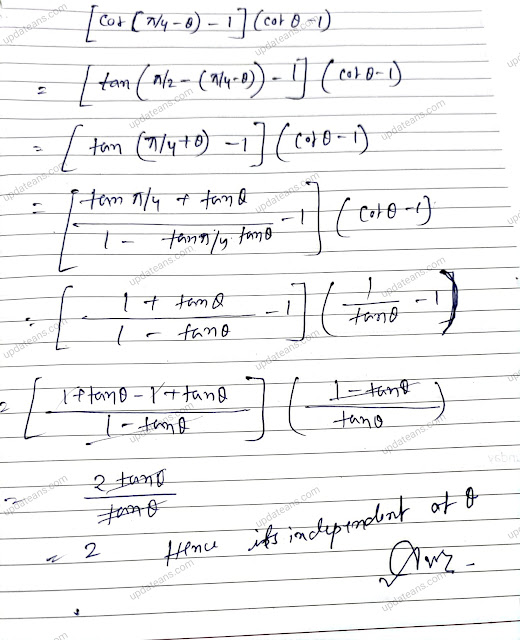 [cot(π/4-θ)-1](cotθ-1)
= [tan(π/2-(π/4-θ))-1](cotθ-1)
= [tan(π/4+θ)-1](cotθ-1)
= [(tan π/4 + tanθ)/(1 - tanπ/4. tanθ) -1](cotθ-1)
= [(1 + tanθ)/(1 - tanθ) -1](1/tanθ -1)
= [(1+tanθ-1+tanθ)/(1-tanθ)]((1-tanθ)/tanθ)
= 2 tanθ/tanθ
= 2 Hence its independent of θ
Ans-
updateans.com